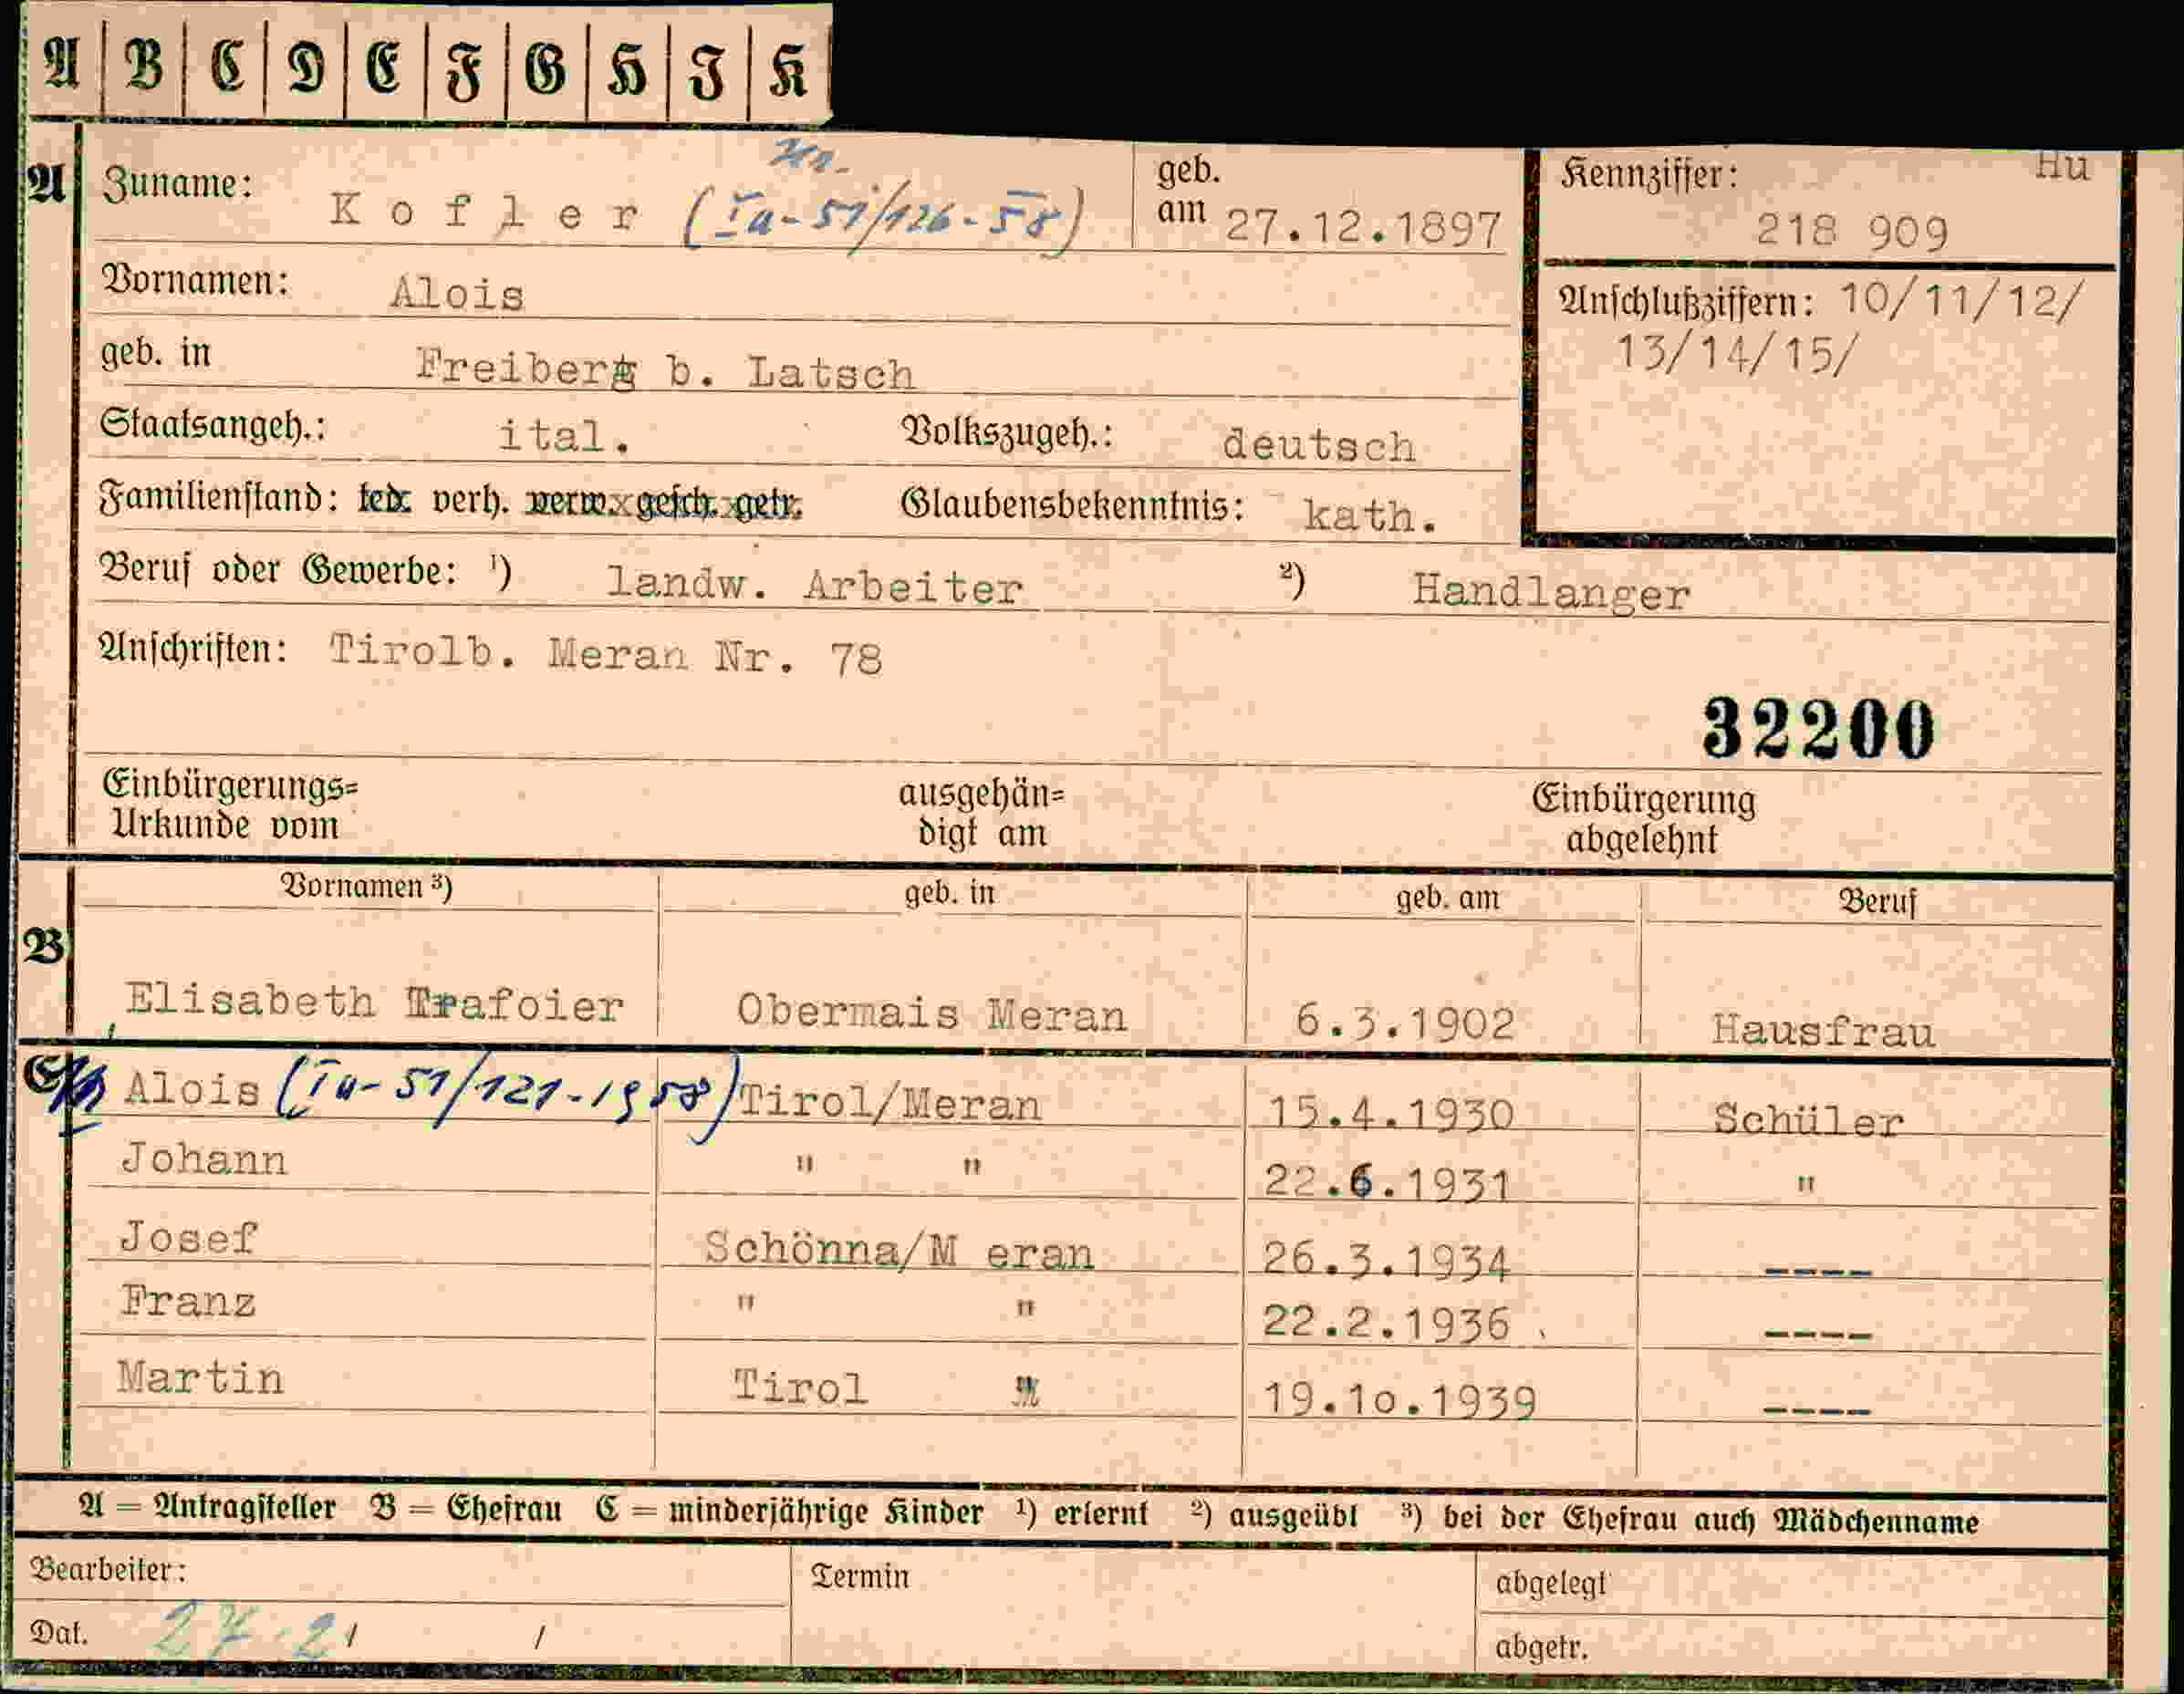 A B C D E F G H J K
A Zuname: Kofler (Ia-51/126-58) geb. am 27.12.1897 Kennziffer: Hu
218 909
Vornamen: Alois
Anschlußziffern: 10/11/12/
13/14/15/
geb. in Freiberg b. Latsch
Staatsangeh.: ital. Volkszugeh.: deutsch
Familienstand: led. verh. verw. gesch. getr. Glaubensbekenntnis: kath.
Beruf oder Gewerbe: ¹) landw. Arbeiter ²) Handlanger
Anschriften: Tirolb. Meran Nr. 78
32200
Einbürgerungs= ausgehän= Einbürgerung
Urkunde vom digt am abgelehnt
Vornamen ³) geb. in geb. am Beruf
B
Elisabeth Trafoier Obermais Meran 6.3.1902 Hausfrau
C Alois (Ia-51/121-1958) Tirol/Meran 15.4.1930 Schüler
Johann " " 22.6.1931 "
Josef Schönna/M eran 26.3.1934 ----
Franz " " 22.2.1936 ----
Martin Tirol " 19.10.1939 ----
A = Antragsteller B = Ehefrau C = minderjährige Kinder ¹) erlernt ²) ausgeübt ³) bei der Ehefrau auch Mädchenname
Bearbeiter: Termin abgelegt
Dat. 27.2/ / abgetr.